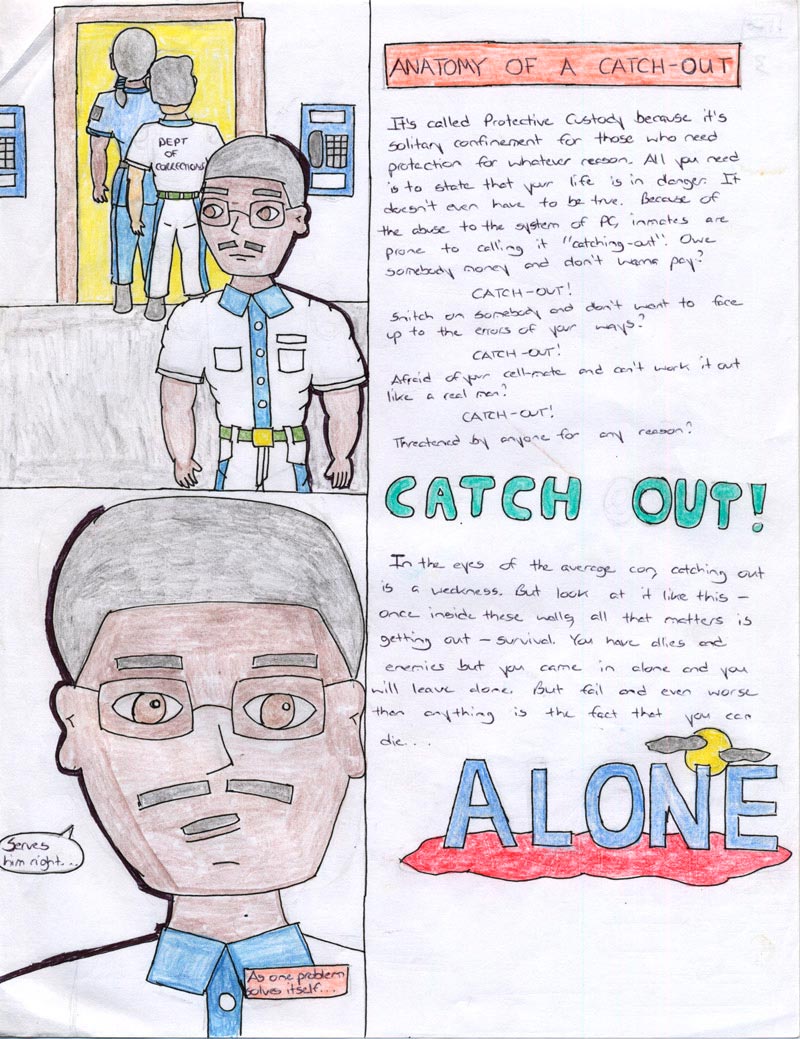 DEPT
OF
CORRECTIONS
Serves
him right...
As one problem
solves itself...
ANATOMY OF A CATCH-OUT
It's called Protective Custody because it's
solitary confinement for those who need
protection for whatever reason. All you need
is to state that your life is in danger. It
doesn't even have to be true. Because of
the abuse to the system of PC, inmates are
prone to calling it "catching-out". Owe
somebody money and don't wanna pay?
CATCH-OUT!
Snitch on somebody and don't want to face
up to the errors of your ways?
CATCH-OUT!
Afraid of your cell-mate and can't work it out
like a real man?
CATCH-OUT!
Threatened by anyone for any reason?
CATCH OUT!
In the eyes of the average con, catching out
is a weakness. But look at it like this -
once inside these walls, all that matters is
getting out - survival. You have allies and
enemies but you came in alone and you
will leave alone. But fail and even worse
then anything is the fact that you can
die...
ALONE